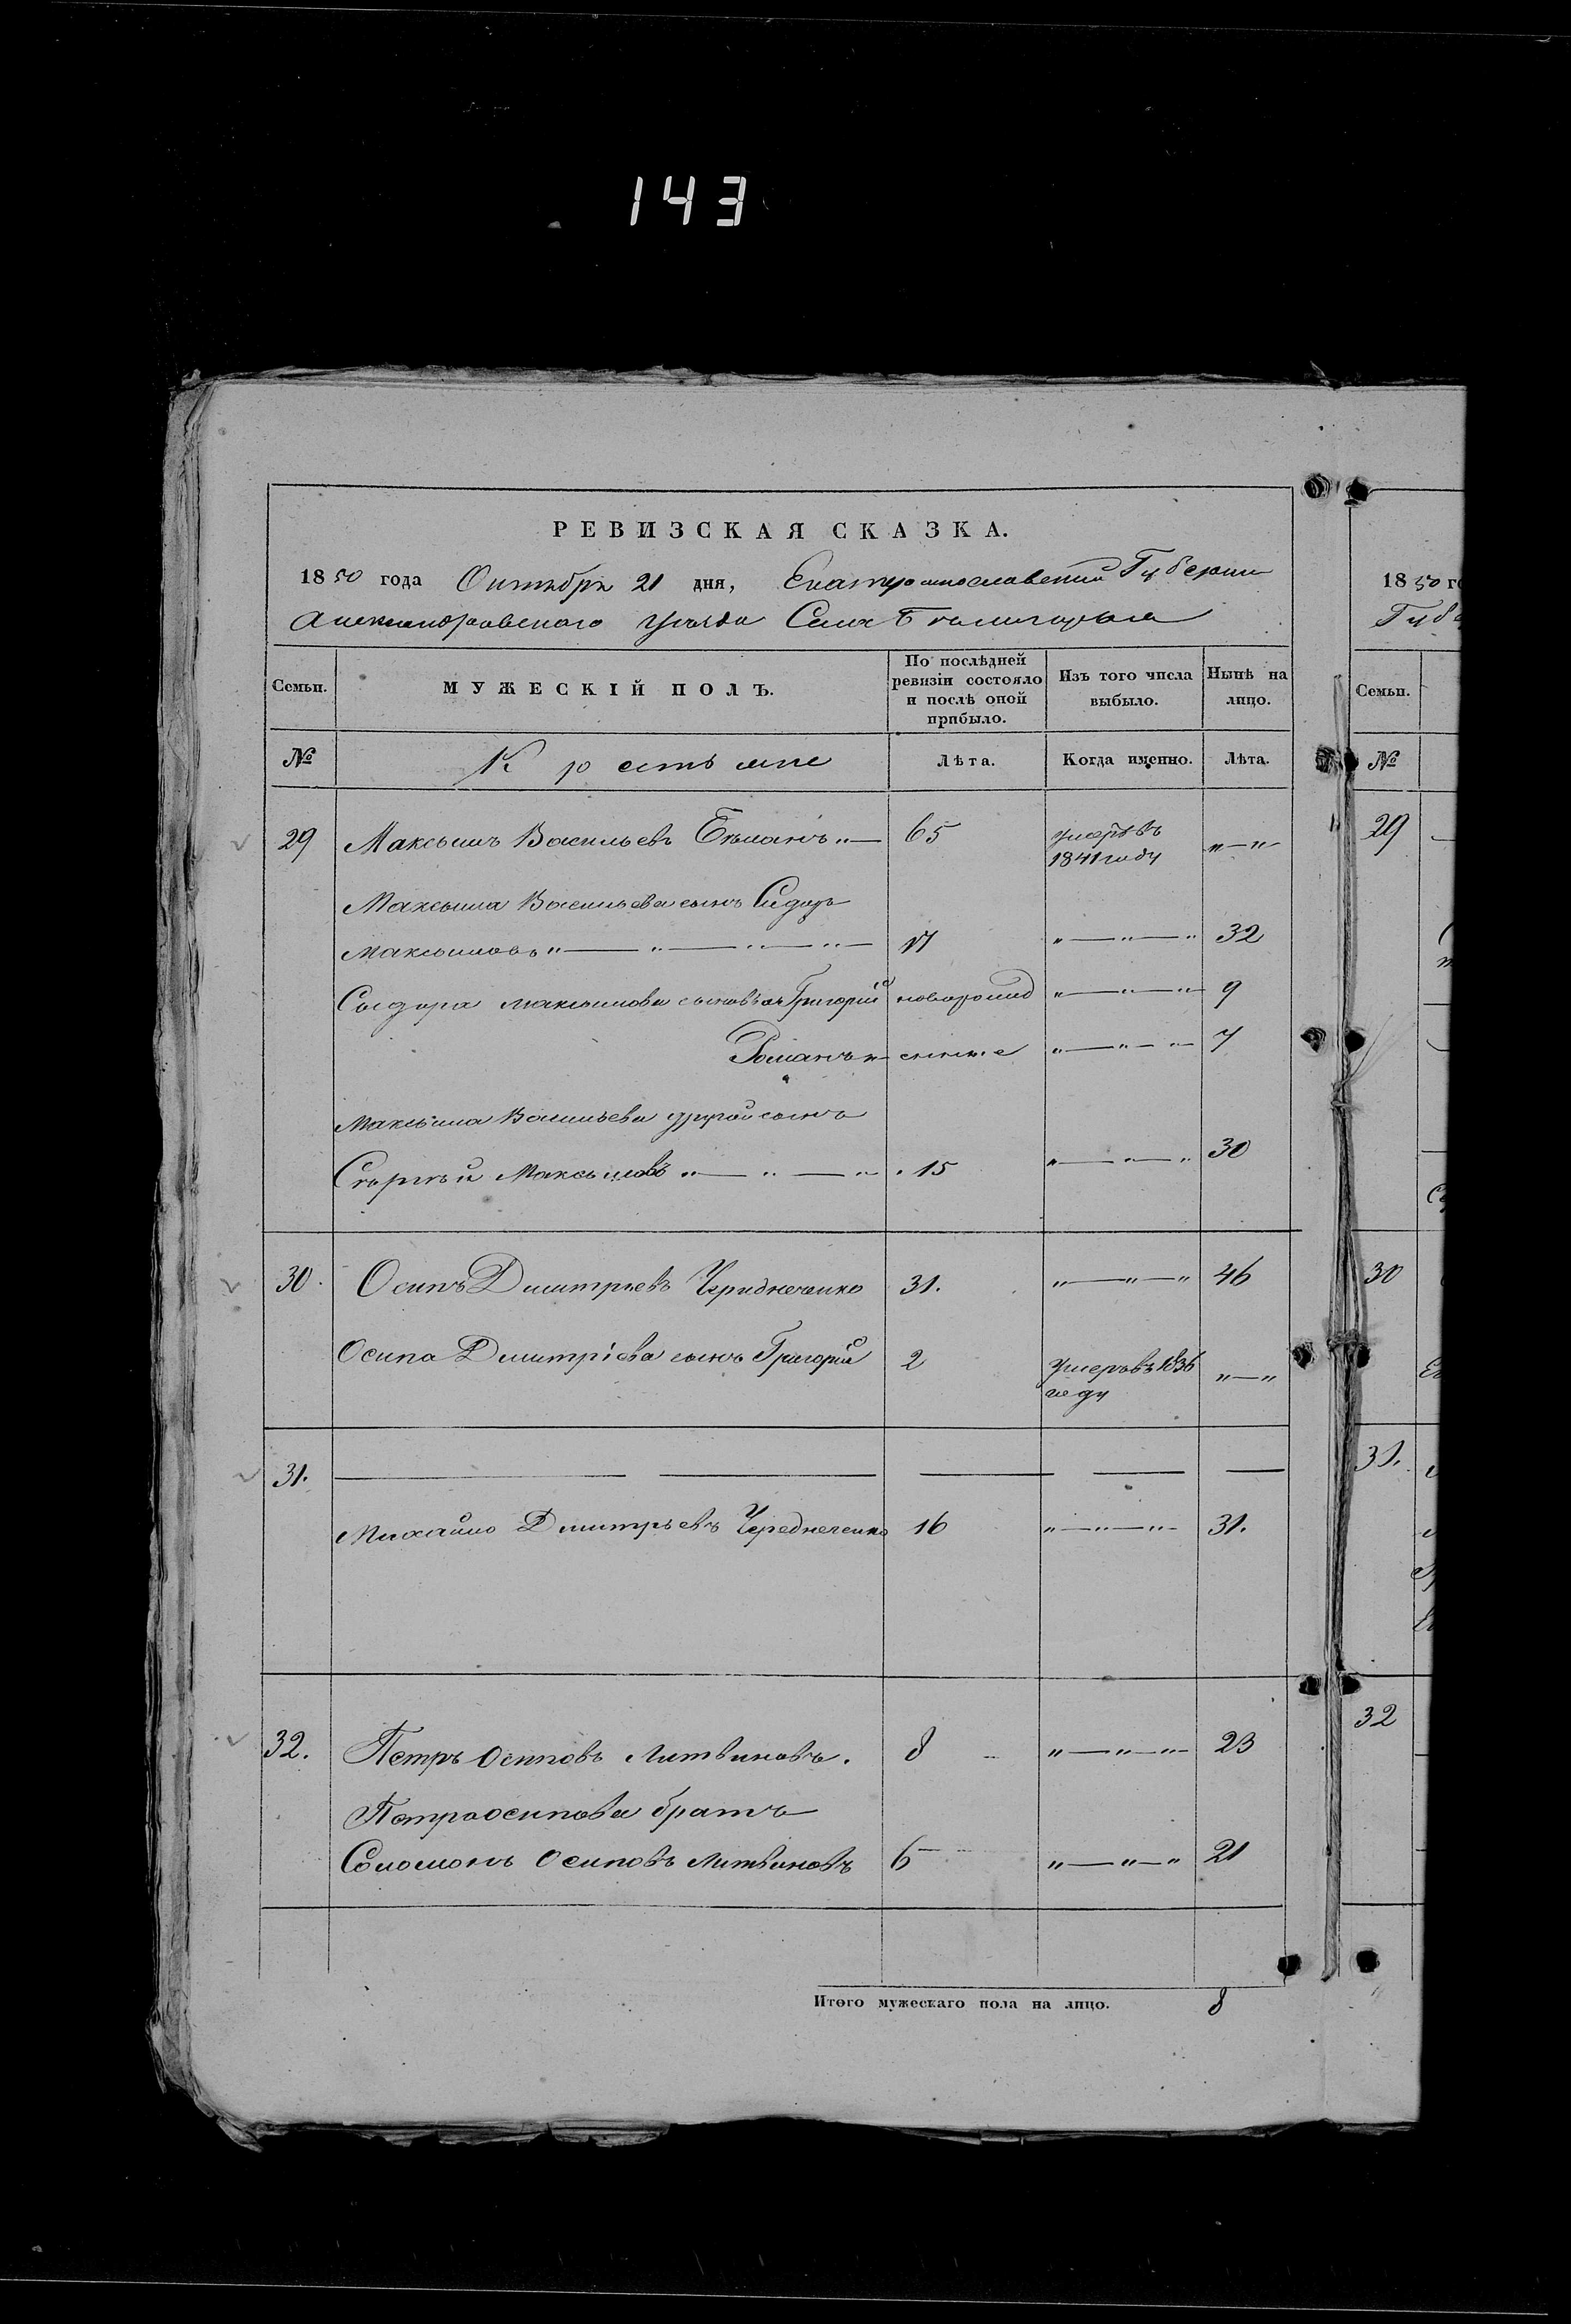 143
РЕВИЗСКАЯ СКАЗКА.
1850 года Октября 21 дня, Екатеринославской Губернии
Александровскаго Уѣзда Села
Семьи.
МУЖЕСКІЙ ПОЛЪ.
По послѣдней ревизіи состояло и послѣ оной прибыло.
Изъ того числа выбыло.
Нынѣ на лицо.
№ Крестьяне Лѣта. Когда именно. Лѣта.
29 Максымъ Васильевъ „— 65 умеръ въ 1841 году „—„
Максыма Васильева сынъ Сидоръ
Максымовъ „—„—„—„ 17 „—„—„ 32
Сыдора Максымова сыновья Григорій новорожд „—„—„ 9
Романъ „— „—„—„ 7
Максыма Васильева другой сынъ
Сѣргѣй Максымовъ „—„—„ 15 „—„—„ 30
30. Осипъ Дмитрiевъ Чередниченко 31. „—„—„ 46
Осипа Дмитріева сынъ Григорій 2 Умеръ въ 1836 году „—„
31.
Михайло Дмитрьевъ Чередниченко 16 „—„—„ 31.
32. Петръ Осиповъ Литвиновъ. 8 „—„—„ 23
Петра Осипова братъ
Соломонъ Осиповъ Литвиновъ 6 „—„—„ 21
Итого мужескаго пола на лицо. 8
1850 го
Губ
Семьи.
№
29
30
31.
32